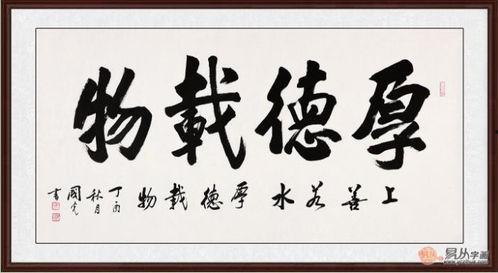 厚德載物
上善若水 厚德載物
丁酉
秋月
國先
書
易从字画
www.yizihua.com